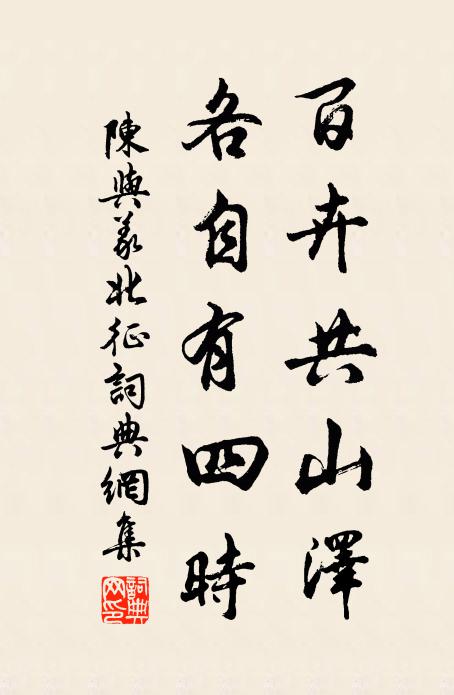 百卉共山澤
各自有四時
陳與義北征詞典網集
詞典網印